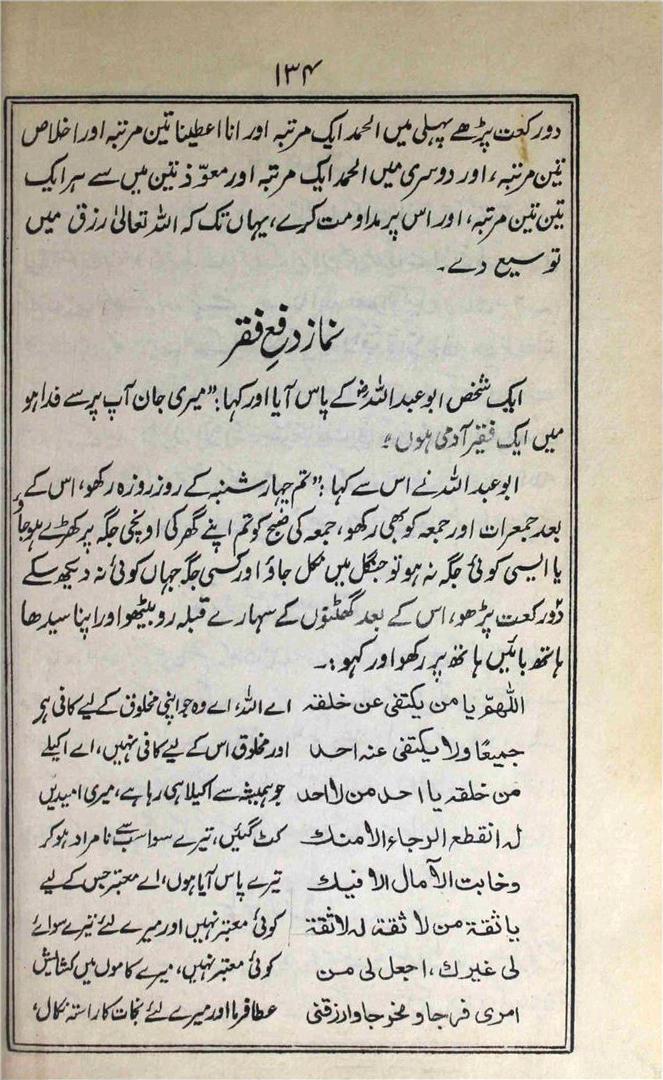 ۱۳۴
دو رکعت پڑھے پہلی میں الحمد ایک مرتبہ اور انا اعطینا تین مرتبہ اور اخلاص
تین مرتبہ، اور دوسری میں الحمد ایک مرتبہ اور معوّذتین میں سے ہر ایک
تین تین مرتبہ، اور اس پر مداومت کرے، یہاں تک کہ اللہ تعالیٰ رزق میں
توسیع دے۔
نماز دفعِ فقر
ایک شخص ابو عبد اللہؓ کے پاس آیا اور کہا: ”میری جان آپ پر سے فدا ہو
میں ایک فقیر آدمی ہوں“
ابو عبد اللہ نے اس سے کہا: ”تم چہار شنبہ کے روز روزہ رکھو، اس کے
بعد جمعرات اور جمعہ کو بھی رکھو، جمعہ کی صبح کو تم اپنے گھر کی اونچی جگہ پر کھڑے ہو جاؤ
یا ایسی کوئی جگہ نہ ہو تو جنگل میں نکل جاؤ اور کسی جگہ جہاں کوئی نہ دیکھ سکے
دو رکعت پڑھو، اس کے بعد گھٹنوں کے سہارے قبلہ رو بیٹھو اور اپنا سیدھا
ہاتھ بائیں ہاتھ پر رکھو اور کہو:۔
اللھمّ یا من یکتفی عن خلقہ اے اللہ، اے وہ جو اپنی مخلوق کے لیے کافی ہو
جمیعًا ولا یکتفی عنہ احد اور مخلوق اس کے لیے کافی نہیں، اے اکیلے
من خلقہ یا احد من لا احد جو ہمیشہ سے اکیلا ہی رہا ہے، میری امیدیں
لہ انقطع الرجاء الا منک کٹ گئیں، تیرے سوا سب سے نامراد ہو کر
وخابت الآمال الا فیک تیرے پاس آیا ہوں، اے معتبر جس کے لیے
یا ثقۃ من لا ثقۃ لہ لا ثقۃ کوئی معتبر نہیں اور میرے لئے تیرے سوائے
لی غیرک، اجعل لی من کوئی معتبر نہیں، میرے کاموں میں کشایش
امری فرجا و مخرجا وارزقنی عطا فرما اور میرے لئے نجات کا راستہ نکال،